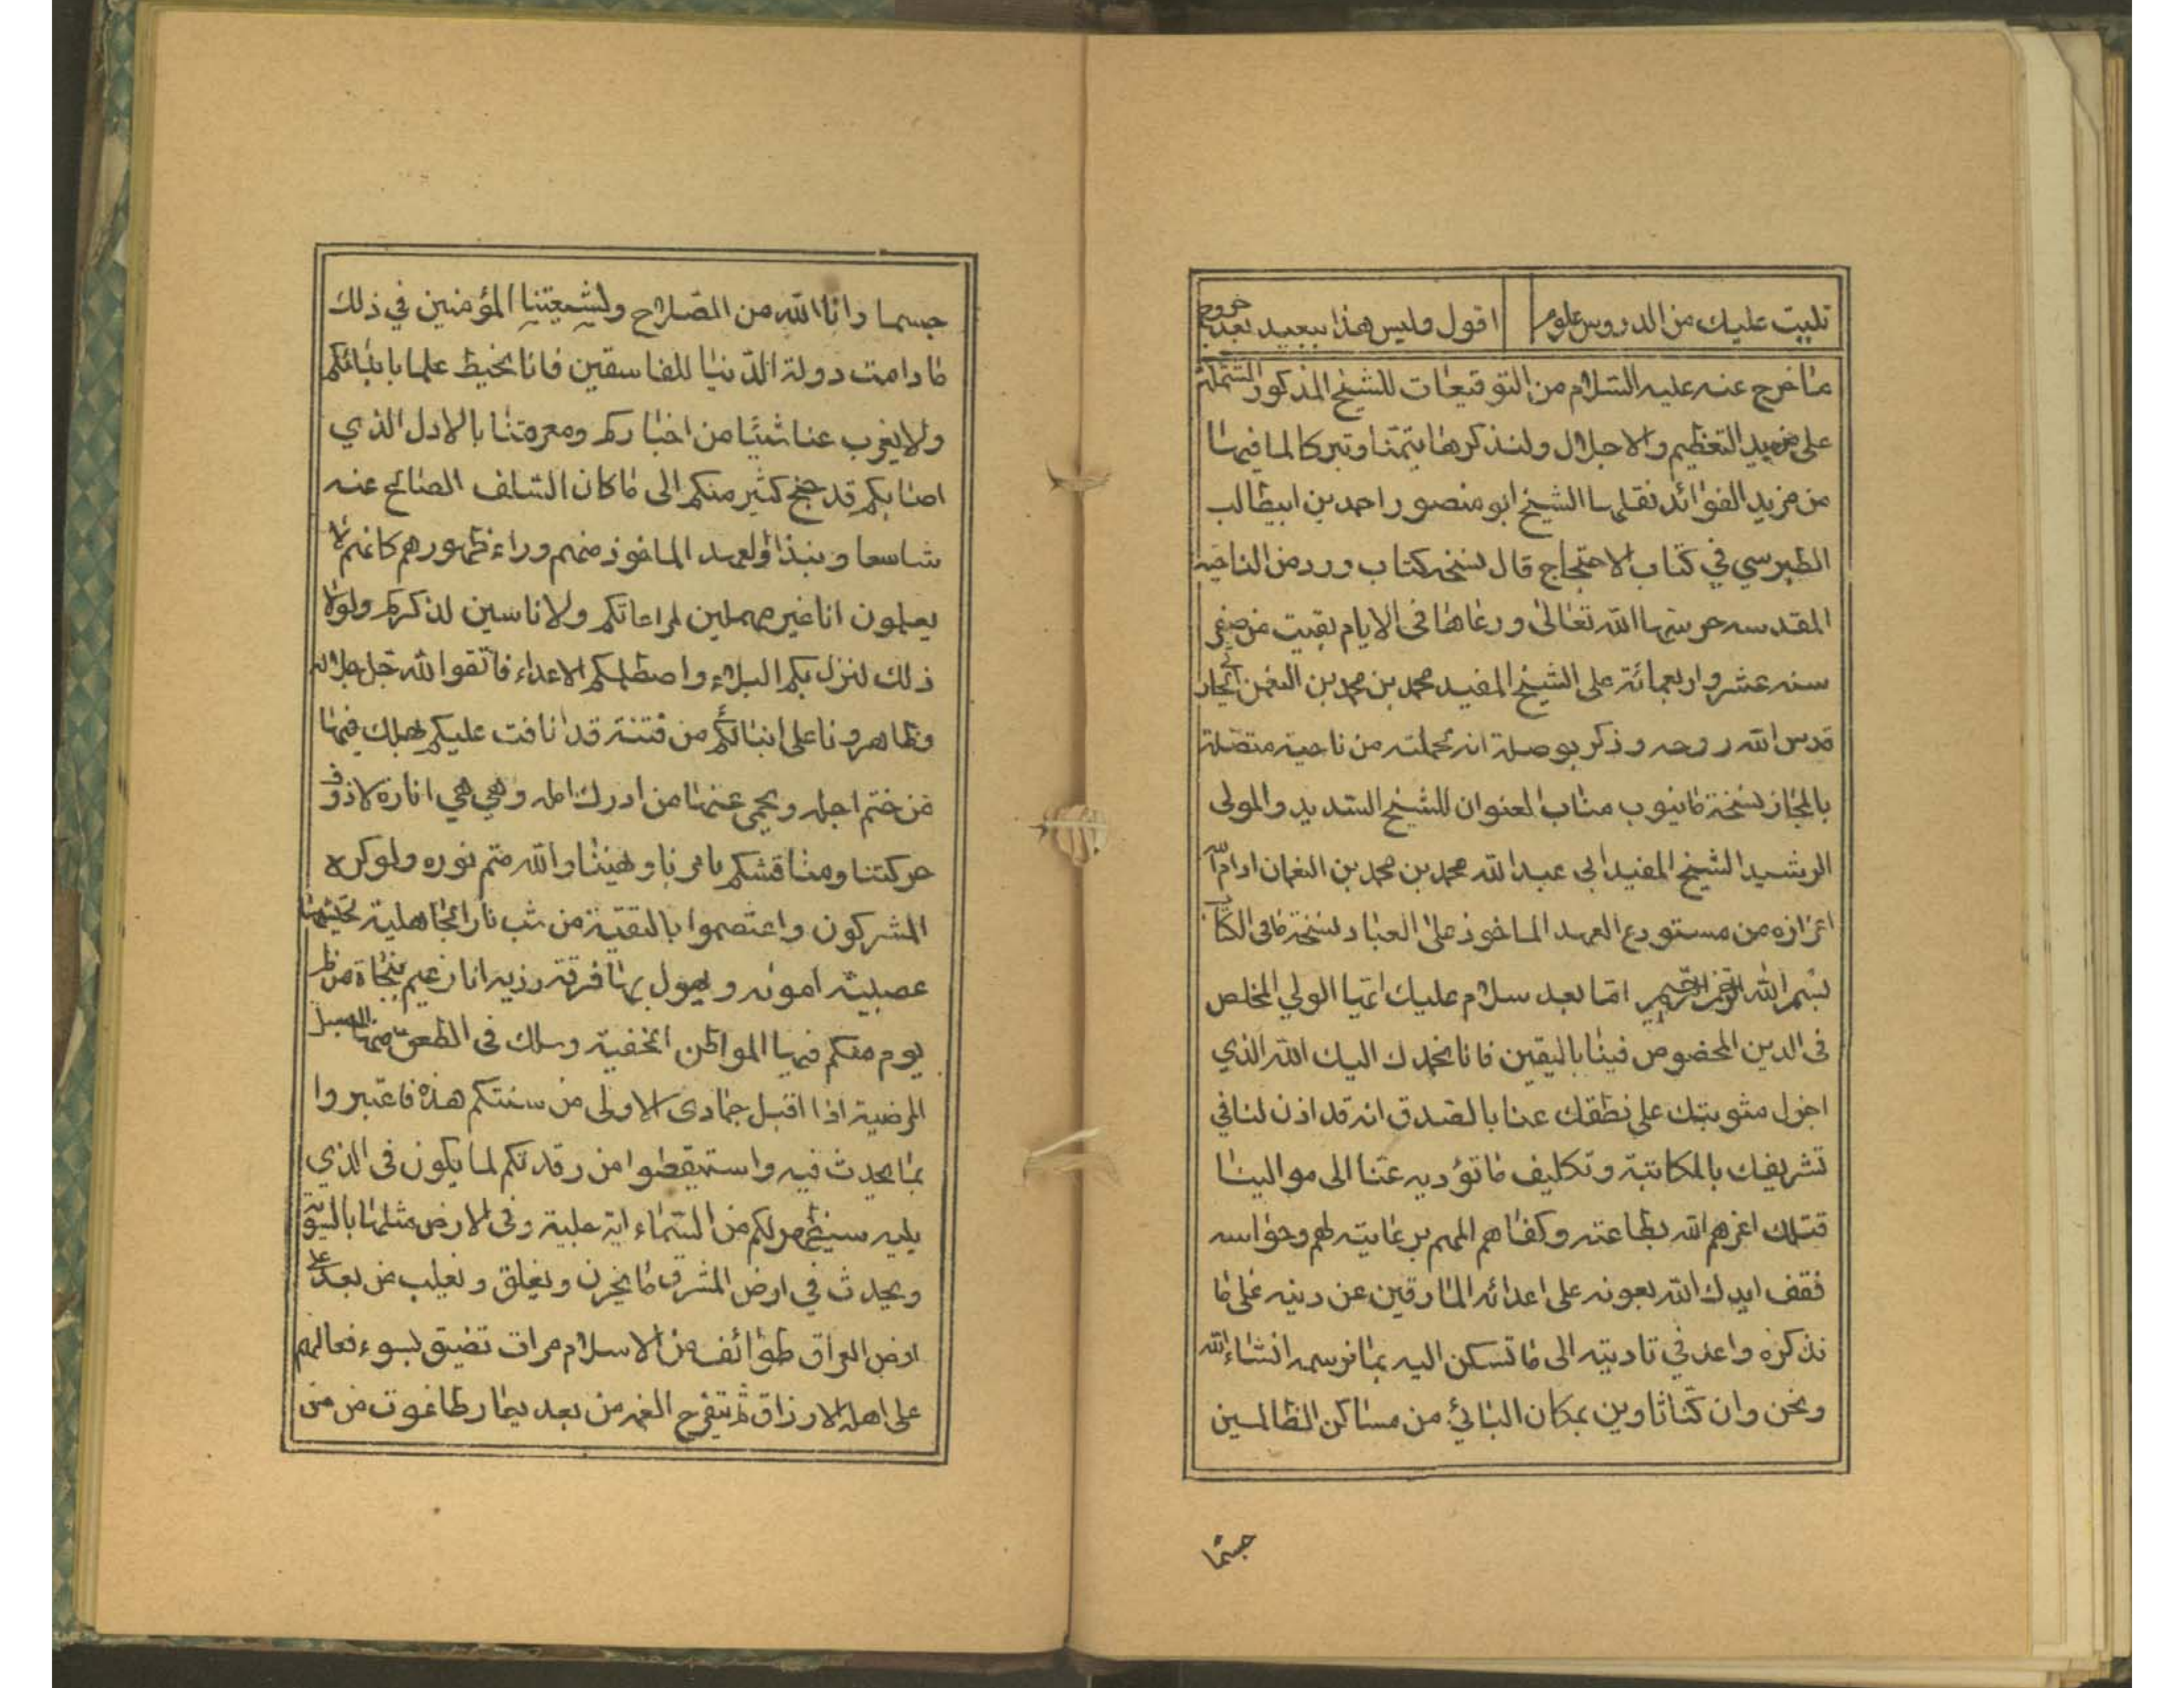 تليت عليك من الدروس علوم اقول وليس هذا ببعيد بعد خروج
ما خرج عنه عليه السلام من التوقيعات للشيخ المذكور المشتملة
على مزيد التعظيم والاجلال ولنذكرها تيمنا وتبركا لما فيها
من مزيد الفوائد نقلها الشيخ ابو منصور احمد بن ابيطالب
الطبرسي في كتاب الاحتجاج قال نسخه كتاب ورد من الناحيه
المقدسه حرسها الله تعالى ورعاها في الايام بقيت من صفر
سنه عشر واربعمائة على الشيخ المفيد محمد بن محمد بن النعمن
قدس الله روحه وذكر بوصلة انه محملته من ناحية متصلة
بالحجاز نسخة ما ينوب مناب العنوان للشيخ السديد والمولى
الرشيد الشيخ المفيد ابى عبد الله محمد بن محمد بن النعمان ادام الله
اعزازه من مستودع العهد الماخوذ على العباد نسخة ما فى الكتاب
بسم الله الرحمن الرحيم اما بعد سلام عليك ايها الولي المخلص
فى الدين المخصوص فينا باليقين فانا نحمدك اليك الله الذي
اجزل مثوبتك على نطقك عنا بالصدق انه قد اذن لنا في
تشريفك بالمكاتبة وتكليف ما تؤديه عنا الى موالينا
قتلك اعزهم الله بطاعته وكفاهم المهم برعايته لهم وحواسه
فقف ايدك الله بعونه على اعدائه المارقين عن دينه على ما
نذكره واعد في تاديته الى ما تسكن اليه بما نرسمه انشاء الله
ونحن وان كنا ثاوين بمكان النائي من مساكن الظالمين
جسما
جسما وانا الله من الصلاح ولشيعتنا المؤمنين في ذلك
ما دامت دولة الدنيا للفاسقين فانا نحيط علما بانبائكم
ولا يغرب عنا شيئا من اخباركم ومعرفتنا بالادل الذي
اصابكم قد جنح كثير منكم الى ما كان السلف الصالح عنه
شاسعا ونبذوا لعهد الماخوذ منهم وراء ظهورهم كانهم لا
يعلمون انا غير مهملين لمراعاتكم ولا ناسين لذكركم ولولا
ذلك لنزل بكم البلاء واصطلمكم الاعداء فاتقوا الله جل جلاله
وظاهرونا على انبائكم من فتنة قد انافت عليكم يهلك فيها
من ختم اجله ويحمى عنها من ادرك امله وهي هي انارة لاذوف
حركتنا ومناقشكم بامرنا ونهينا والله متم نوره ولو كره
المشركون واعتصموا بالتقية من شب نار الجاهلية
عصبيته امونه ويهول بها فرقة رزيه انا زعيم بنجاة من
يوم منكم فيها المواطن الخفية وسلك فى الطعن منها السبل
المرضية اذا اقبل جمادى الاولى من سنتكم هذه فاعتبروا
بما يحدث فيه واستيقظوا من رقدتكم لما يكون فى الذي
يليه سيظهر لكم من السماء اية جلية وفى الارض مثلها بالسوية
ويحدث في ارض المشرق ما يحزن ويغلق ويغلب من بعد على
ارض العراق طوائف من الاسلام مراق تضيق بسوء فعالهم
على اهله الارزاق ثم تنفرج الغمه من بعد بيمار طاغوت من من